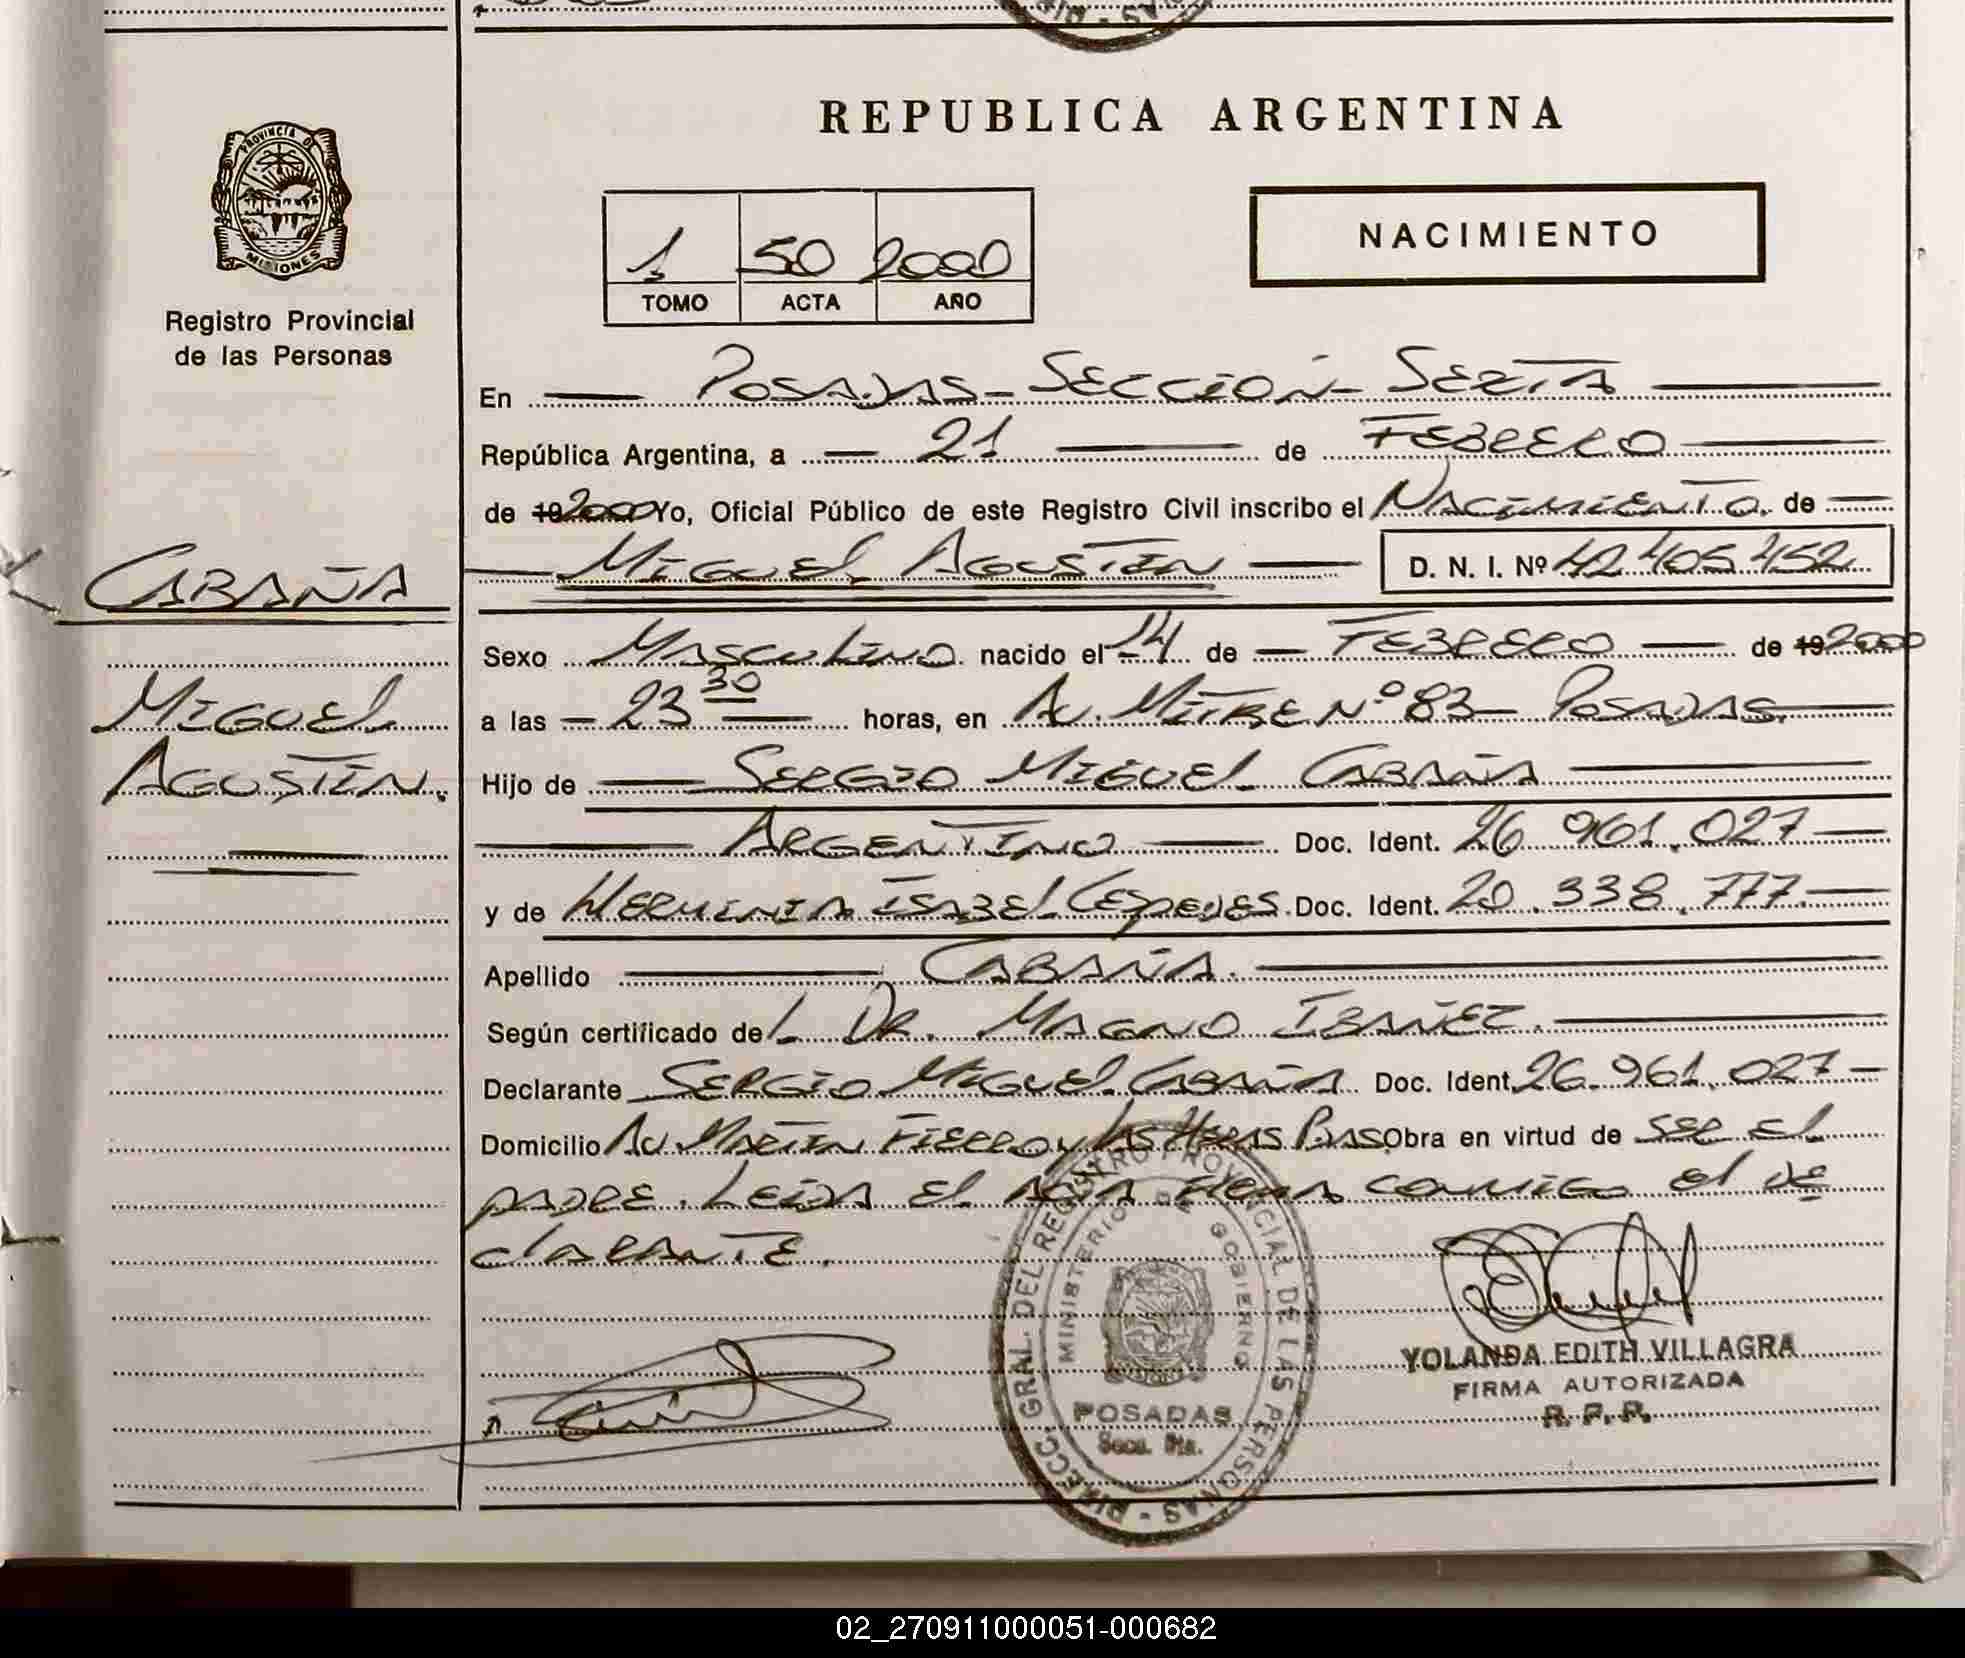 REPUBLICA ARGENTINA
PROVINCIA DE
MISIONES
Registro Provincial
de las Personas
NACIMIENTO
1 50 2000
TOMO ACTA AÑO
En Posadas - Sección - Sexta
República Argentina, a 21 de Febrero
de 19 2000 Yo, Oficial Público de este Registro Civil inscribo el Nacimiento de
Miguel Agustín D. N. I. Nº 42.405.452
Cabaña
Miguel
Agustín.
Sexo Masculino nacido el 14 de Febrero de 19 2000
a las 23 30 horas, en Av. Mitre Nº 83 - Posadas.
Hijo de Sergio Miguel Cabaña
Argentino Doc. Ident. 26.961.027
y de Herminia Isabel Cespedes Doc. Ident. 20.338.777
Apellido Cabaña.
Según certificado del Dr. Magno Ibañez.
Declarante Sergio Miguel Cabaña Doc. Ident. 26.961.027
Domicilio Av. Martín Fierro y Las Heras Pdas Obra en virtud de ser el
padre. Leída el acta firma conmigo el de
clarante.
YOLANDA EDITH VILLAGRA
FIRMA AUTORIZADA
R. P. P.
DIRECC. GRAL. DEL REGISTRO PROVINCIAL DE LAS PERSONAS
MINISTERIO DE GOBIERNO
POSADAS
Secc. 6ta.
02_270911000051-000682